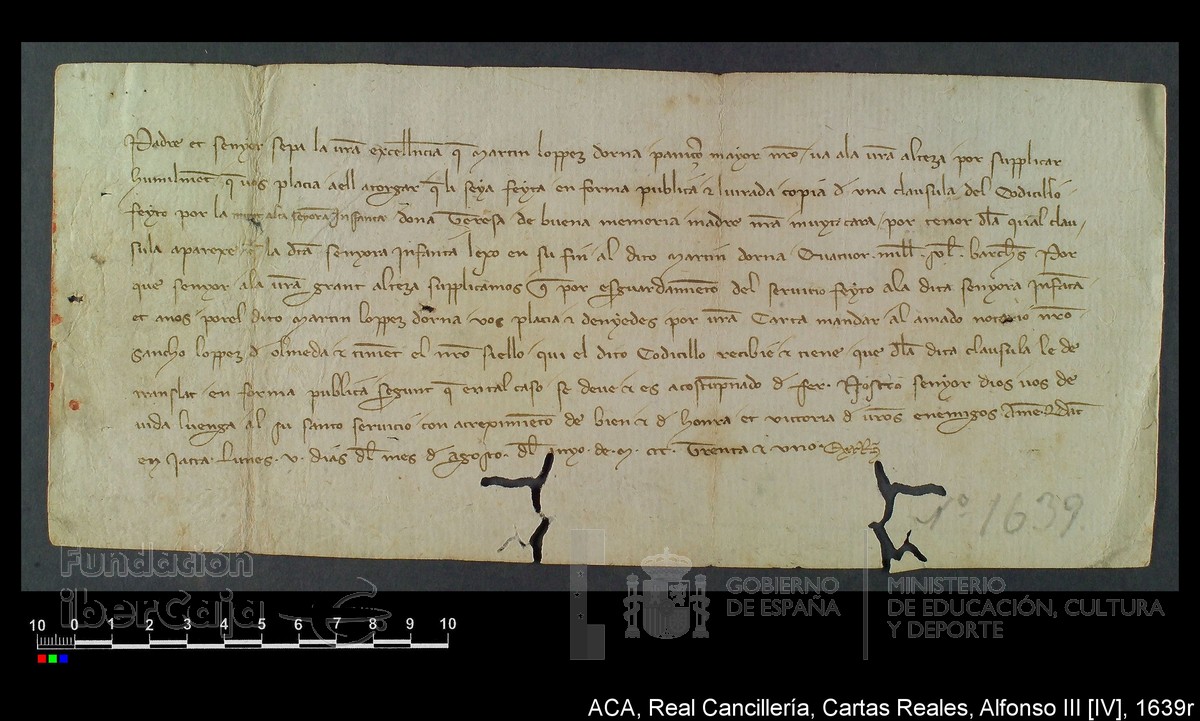 Padre et senyor sepa la vra excellencia q̃ Martin loppez dorna mayor nro · va ala vra alteza por supplicar
humilmẽt q̃ vos placia aell atorgar q̃ li seya feyta en forma publica & livrada copia d una clausula del Codicillo ·
feyto por la muyt alta senyora Infanta dona Teresa de buena memoria madre nra muyt cara · por tenor dla qual clau-
sula aparexe q̃ la dita senyora infanta lexo en su fin al dito Martin dorna Quatuor · mill · sol · barchs · Por
que senyor ala vra grant alteza supplicamos q̃ por esguardamiẽto del servicio feyto ala dita senyora Infãta ·
et anos porel dito Martin loppez dorna vos placia & denyedes por vra Carta mandar al amado notario nro
Sancho loppez d olmeda & tiniẽt el nro siello qui el dito Codicillo recibie & tiene que dla dita clausula le de
translat en forma publica segunt q̃ en tal caso se deve & es acostũpnado d fer · Nostro senyor dios vos de
vida luenga al su santo servicio con acreximiẽto de bien & d honra et victoria d vros enemigos · Amẽ · Dat
en Jacca · Lunes · v · dias dl mes d agosto · dl anyo · de · M · CCC · Trenta & uno ·
Nº 1639.
Fundación
iberCaja
GOBIERNO
DE ESPAÑA
MINISTERIO
DE EDUCACIÓN, CULTURA
Y DEPORTE
10 0 1 2 3 4 5 6 7 8 9 10
ACA, Real Cancillería, Cartas Reales, Alfonso III [IV], 1639r